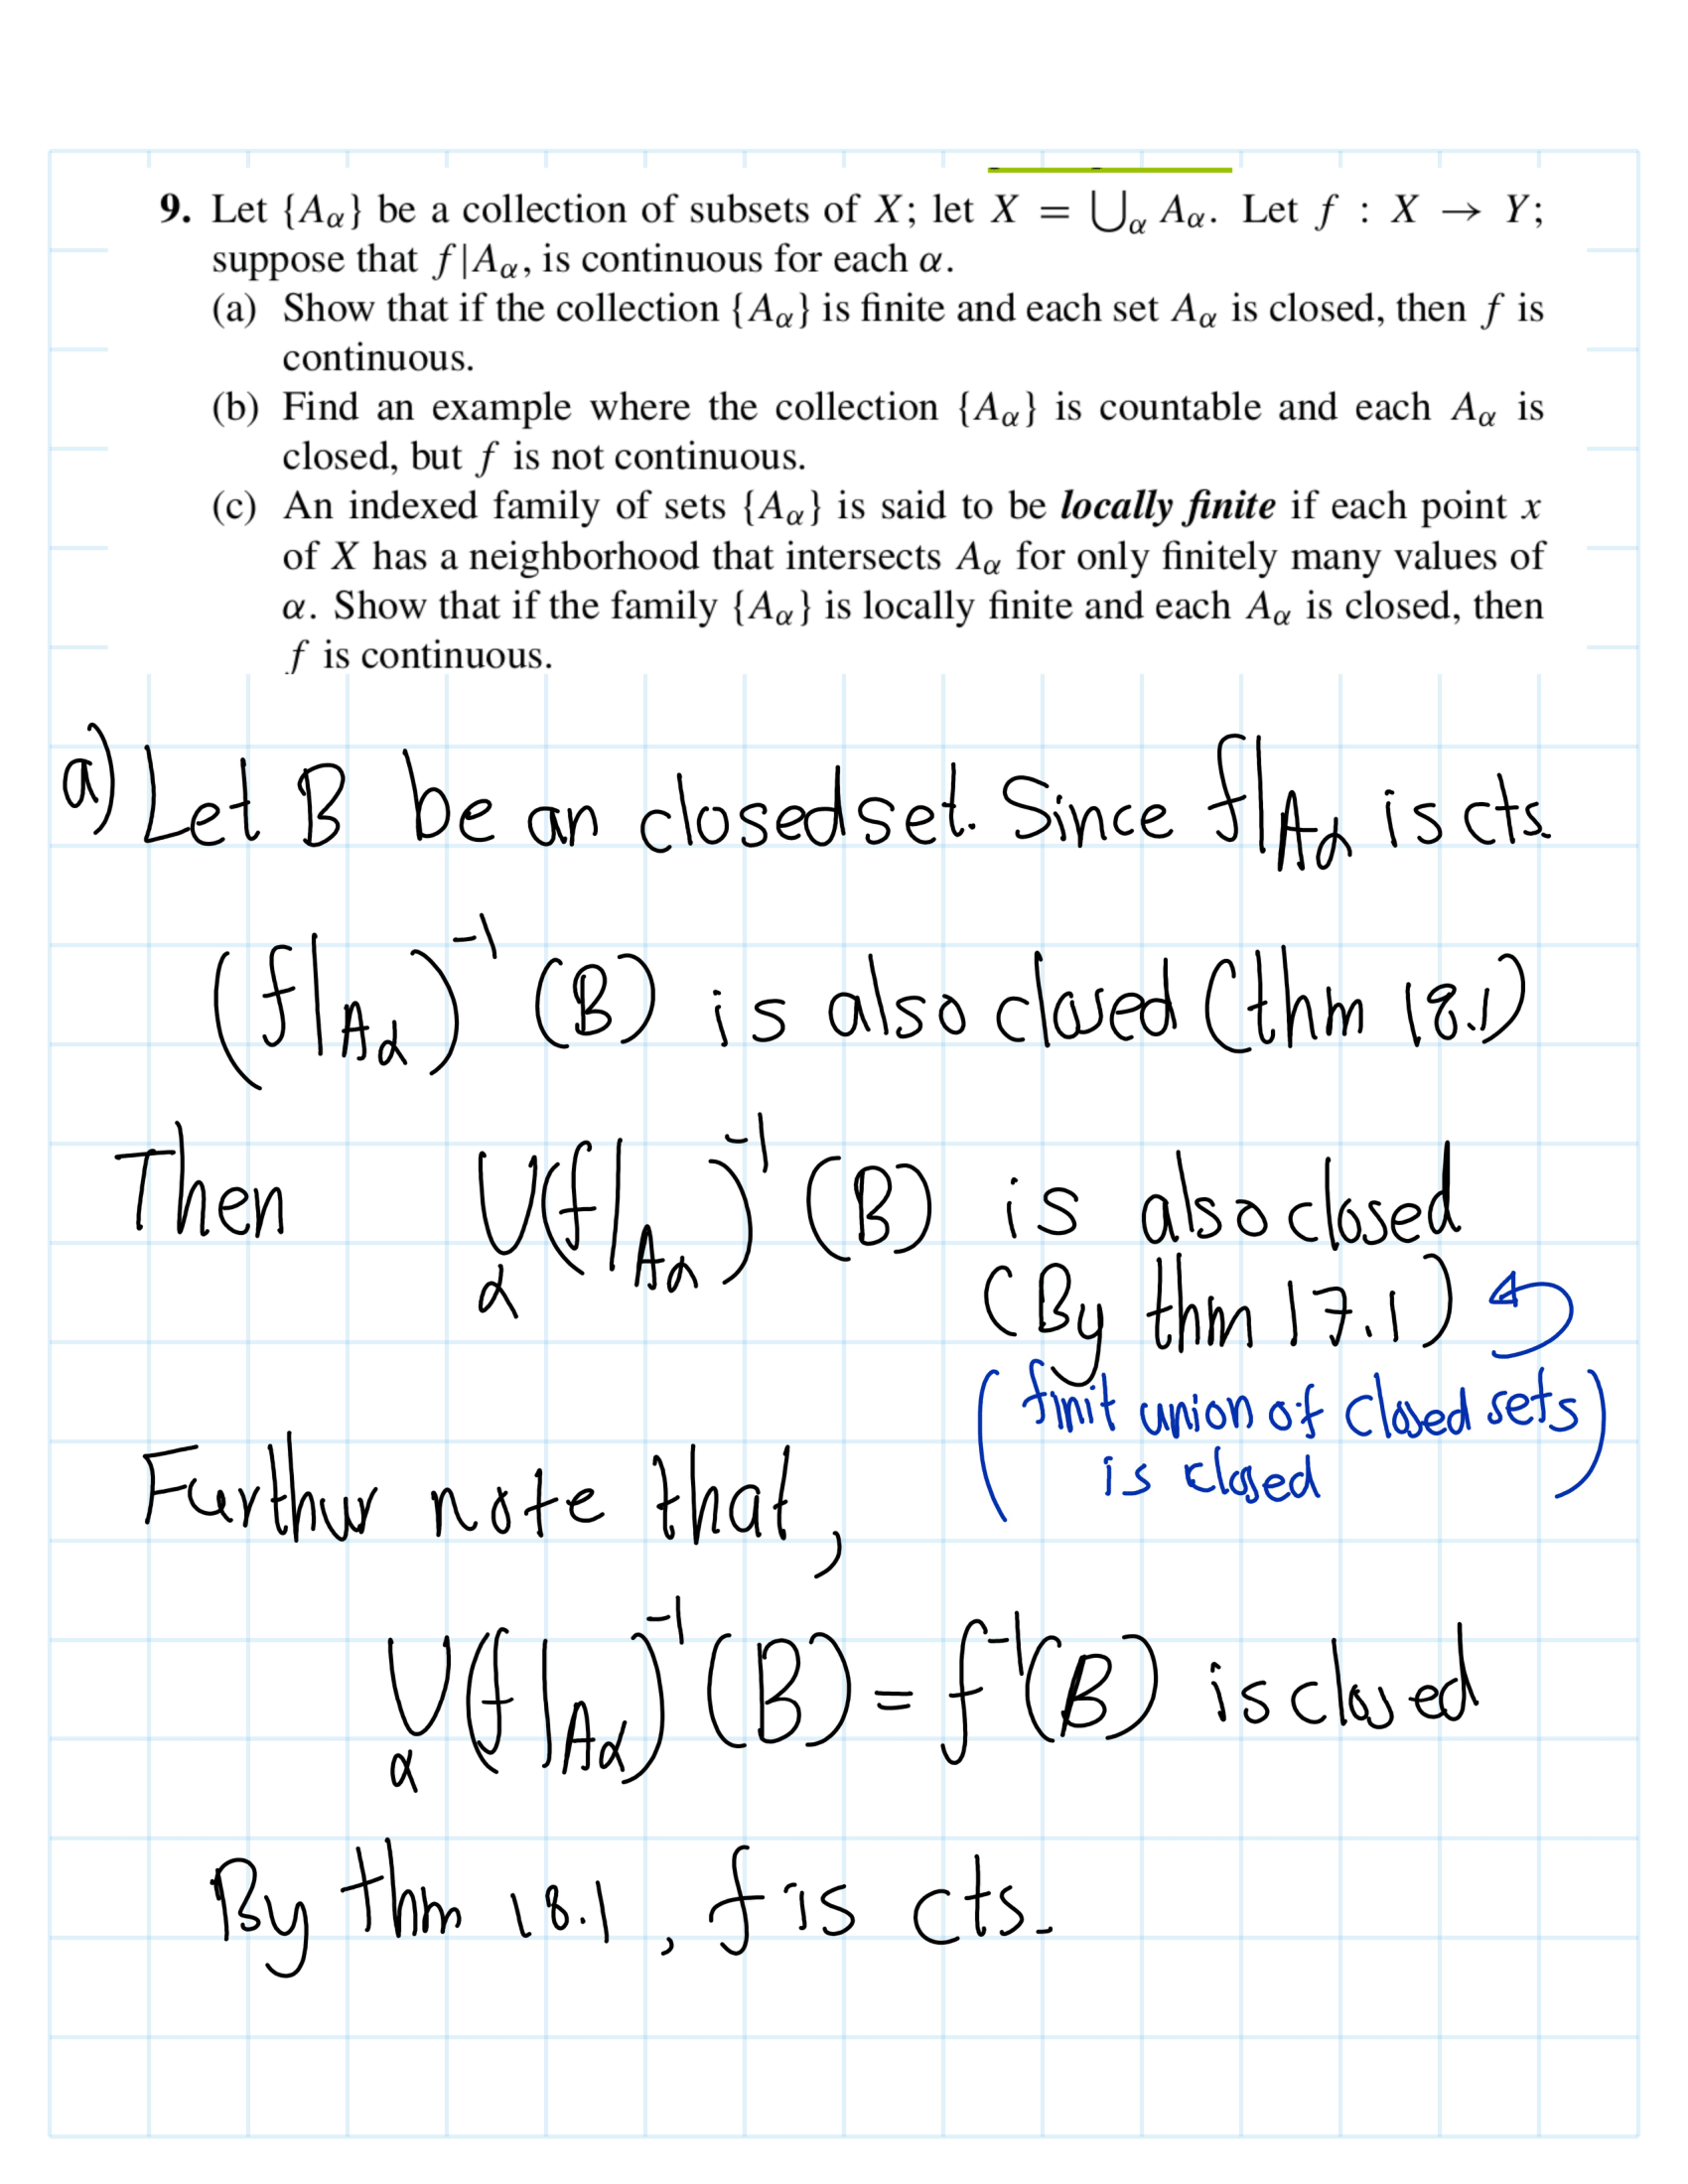 9. Let {Aα} be a collection of subsets of X; let X = ⋃α Aα. Let f : X → Y;
suppose that f|Aα, is continuous for each α.
(a) Show that if the collection {Aα} is finite and each set Aα is closed, then f is
continuous.
(b) Find an example where the collection {Aα} is countable and each Aα is
closed, but f is not continuous.
(c) An indexed family of sets {Aα} is said to be locally finite if each point x
of X has a neighborhood that intersects Aα for only finitely many values of
α. Show that if the family {Aα} is locally finite and each Aα is closed, then
f is continuous.
a) Let B be an closed set. Since f|Aα is cts.
(f|Aα)⁻¹(B) is also closed (thm 18.1)
Then ⋃α (f|Aα)⁻¹(B) is also closed
(By thm 17.1)
(finit union of closed sets
is closed)
Further note that,
⋃α (f|Aα)⁻¹(B) = f⁻¹(B) is closed
By thm 18.1, f is cts.